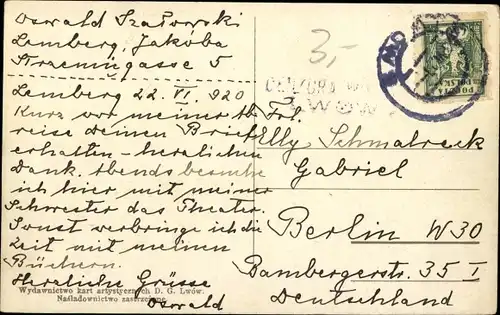 Oswald Szatorski
Lemberg, Jakóba
Strzemięgasse 5
Lemberg 22. VI. 920
Kurz vor meiner Ab-
reise Deinen Brief
erhalten – herzlichen
Dank. Abends besuche
ich hier mit meiner
Schwester das Theater.
Sonst verbringe ich die
Zeit mit meinen
Büchern.
Herzliche Grüsse
Oswald
Wydawnictwo kart artystycznych D. G. Lwów.
Naśladownictwo zastrzeżone.
3,-
CENZURA
LWÓW
POCZTA
POLSKA
Frl.
Elly Schmalreck
Gabriel
Berlin W30
Bambergerstr. 35 I
Deutschland